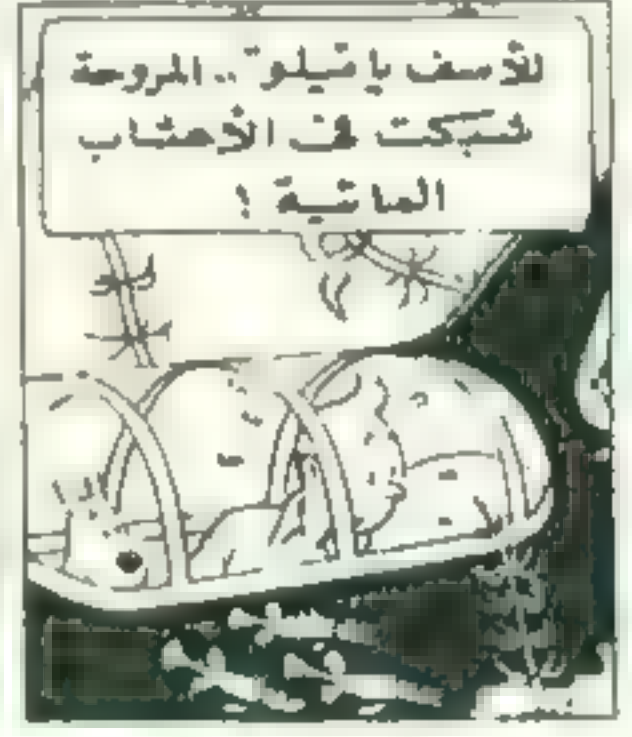 للأسف يا تيلو".. المروحة
شبكت فى الأعشاب
المائية !